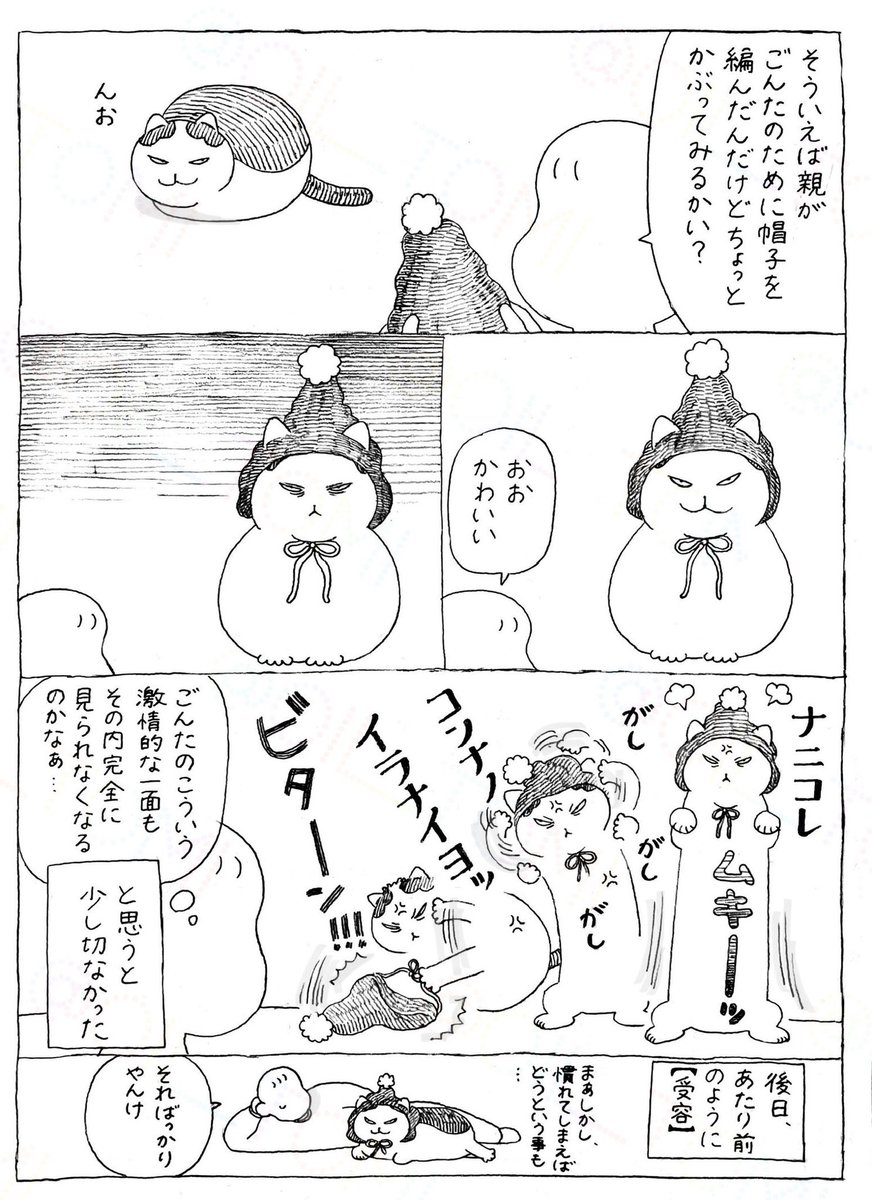 そういえば親が
ごんたのために帽子を
編んだんだけどちょっと
かぶってみるかい？
んお
おお
かわいい
ナニコレ
ムキーッ
がし
がし
がし
コンナノ
イラナイヨッ
ビターン!!!
ごんたのこういう
激情的な一面も
その内完全に
見られなくなる
のかなぁ…
と思うと
少し切なかった
後日、
あたり前
のように
【受容】
まぁしかし、
慣れてしまえば
どうという事も
…
そればっかり
やんけ